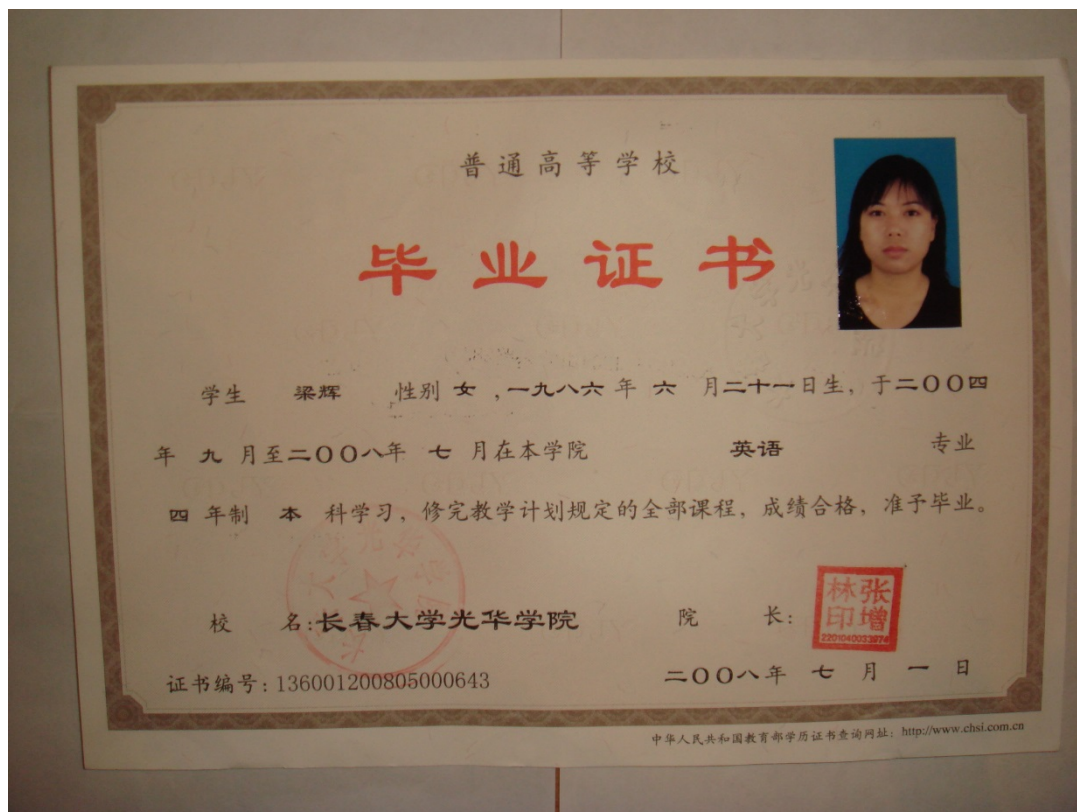 普通高等学校
毕业证书
学生 梁辉 性别 女 ,一九八六 年 六 月二十一日生, 于二〇〇四
年 九 月至二〇〇八年 七 月在本学院 英语 专业
四 年制 本 科学习, 修完教学计划规定的全部课程, 成绩合格, 准予毕业。
校 名:长春大学光华学院 院 长:
张增林印
2201040033974
证书编号: 136001200805000643 二〇〇八年 七 月 一 日
中华人民共和国教育部学历证书查询网址: http://www.chsi.com.cn